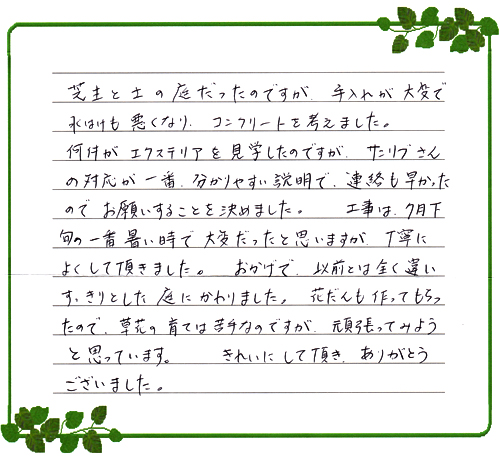 芝生と土の庭だったのですが、手入れが大変で
水はけも悪くなり、コンクリートを考えました。
何件かエクステリアを見学したのですが、サンリブさん
の対応が一番、分かりやすい説明で、連絡も早かった
のでお願いすることを決めました。 工事は、7月下
旬の一番暑い時で大変だったと思いますが、丁寧に
よくして頂きました。 おかげで、以前とは全く違い
すっきりとした庭にかわりました。 花だんも作ってもらっ
たので、草花の育ては苦手なのですが、頑張ってみよう
と思っています。 きれいにして頂き、ありがとう
ございました。